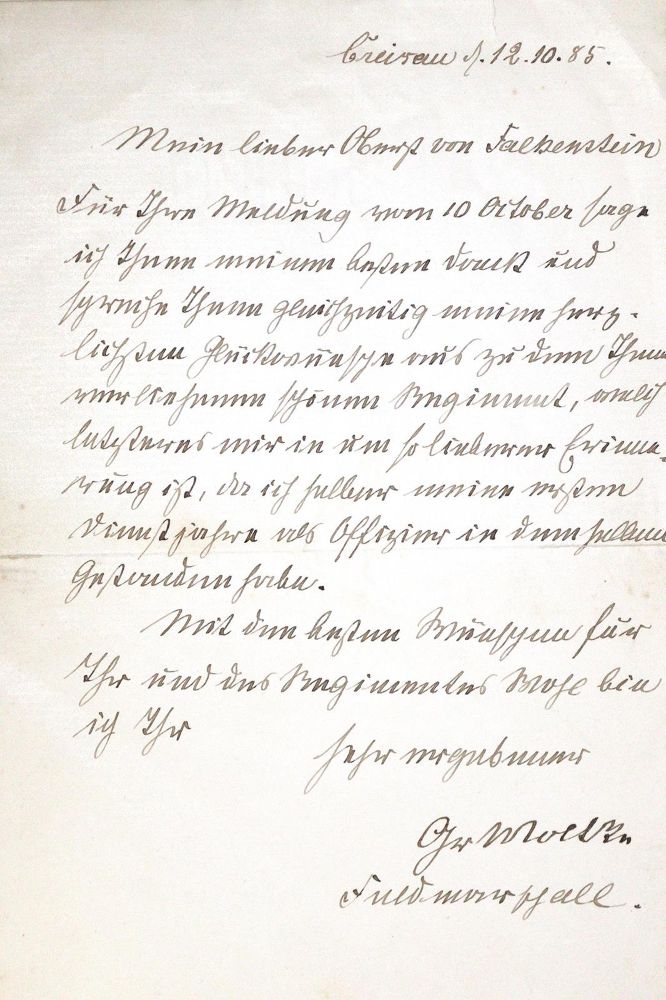 Creisau d. 12.10.85.
Mein lieber Oberst von Falkenstein
Für Ihre Meldung vom 10 October sage
ich Ihnen meinen besten Danck und
spreche Ihnen gleichzeitig meine herz-
lichsten Glückwünsche aus zu dem Ihnen
verliehenen schönen Regiment, welch
letzteres mir in um so lieberer Erinne-
rung ist, da ich selber meine ersten
Dienstjahre als Offizier in demselben
gestanden habe.
Mit den besten Wünschen für
Ihr und des Regimentes Wohl bin
ich Ihr
sehr ergebener
Gr Moltke
Feldmarschall.